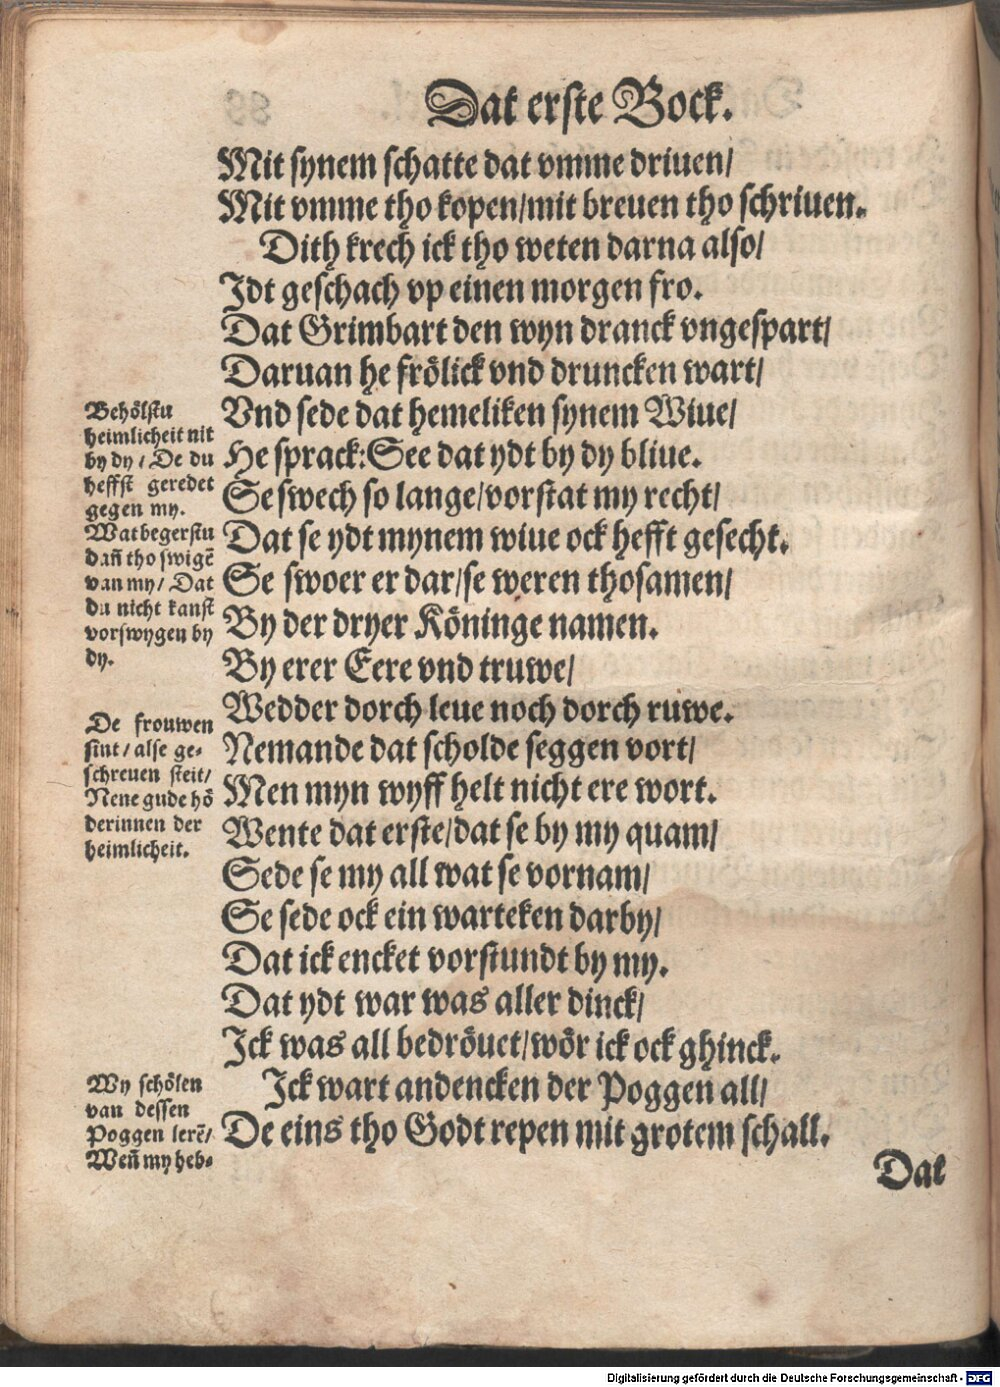 Dat erste Bock.
Mit synem schatte dat vmme driuen/
Mit vmme tho kopen/mit breuen tho schriuen.
Dith krech ick tho weten darna also/
Jdt geschach vp einen morgen fro.
Dat Grimbart den wyn dranck vngespart/
Daruan he frölick vnd druncken wart/
Vnd sede dat hemeliken synem Wiue/
He sprack: See dat ydt by dy bliue.
Se swech so lange/vorstat my recht/
Dat se ydt mynem wiue ock hefft gesecht.
Se swoer er dar/se weren thosamen/
By der dryer Köninge namen.
By erer Eere vnd truwe/
Wedder dorch leue noch dorch ruwe.
Nemande dat scholde seggen vort/
Men myn wyff helt nicht ere wort.
Wente dat erste/dat se by my quam/
Sede se my all wat se vornam/
Se sede ock ein warteken darby/
Dat ick encket vorstundt by my.
Dat ydt war was aller dinck/
Jck was all bedröuet/wör ick ock ghinck.
Jck wart andencken der Poggen all/
De eins tho Godt repen mit grotem schall.
Dat
Behölstu
heimlicheit nit
by dy/ De du
heffst geredet
gegen my.
Wat begerstu
dañ tho swigē
van my/ Dat
du nicht kanst
vorswygen by
dy.
De frouwen
sint/ alse ge-
schreuen steit/
Nene gude hö
derinnen der
heimlicheit.
Wy schölen
van dessen
Poggen lerē/
Weñ my heb-
Digitalisierung gefördert durch die Deutsche Forschungsgemeinschaft - DFG